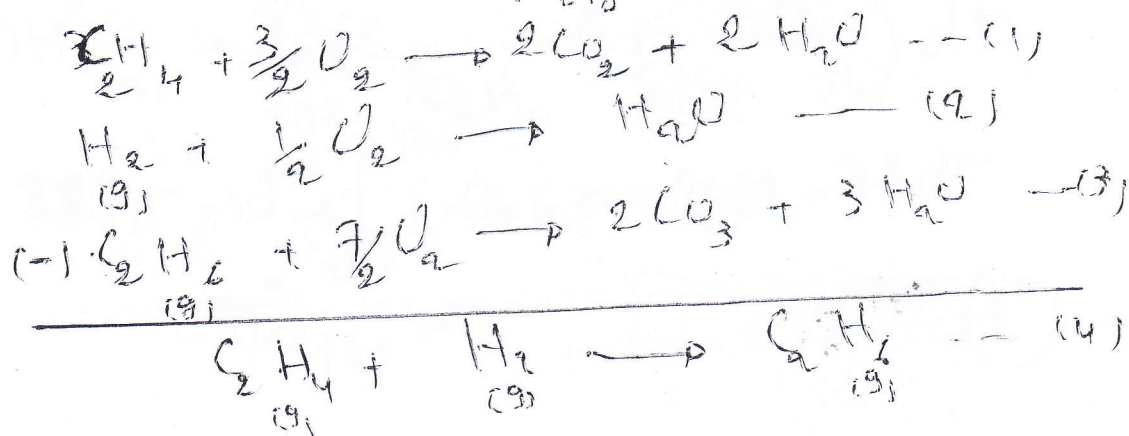 C₂H₄ + 3/2 O₂ → 2CO₂ + 2 H₂O -- (1)
H₂(g) + 1/2 O₂ → H₂O — (2)
(-) C₂H₆(g) + 7/2 O₂ → 2CO₃ + 3 H₂O — (3)
C₂H₄(g) + H₂(g) → C₂H₆(g) -- (4)